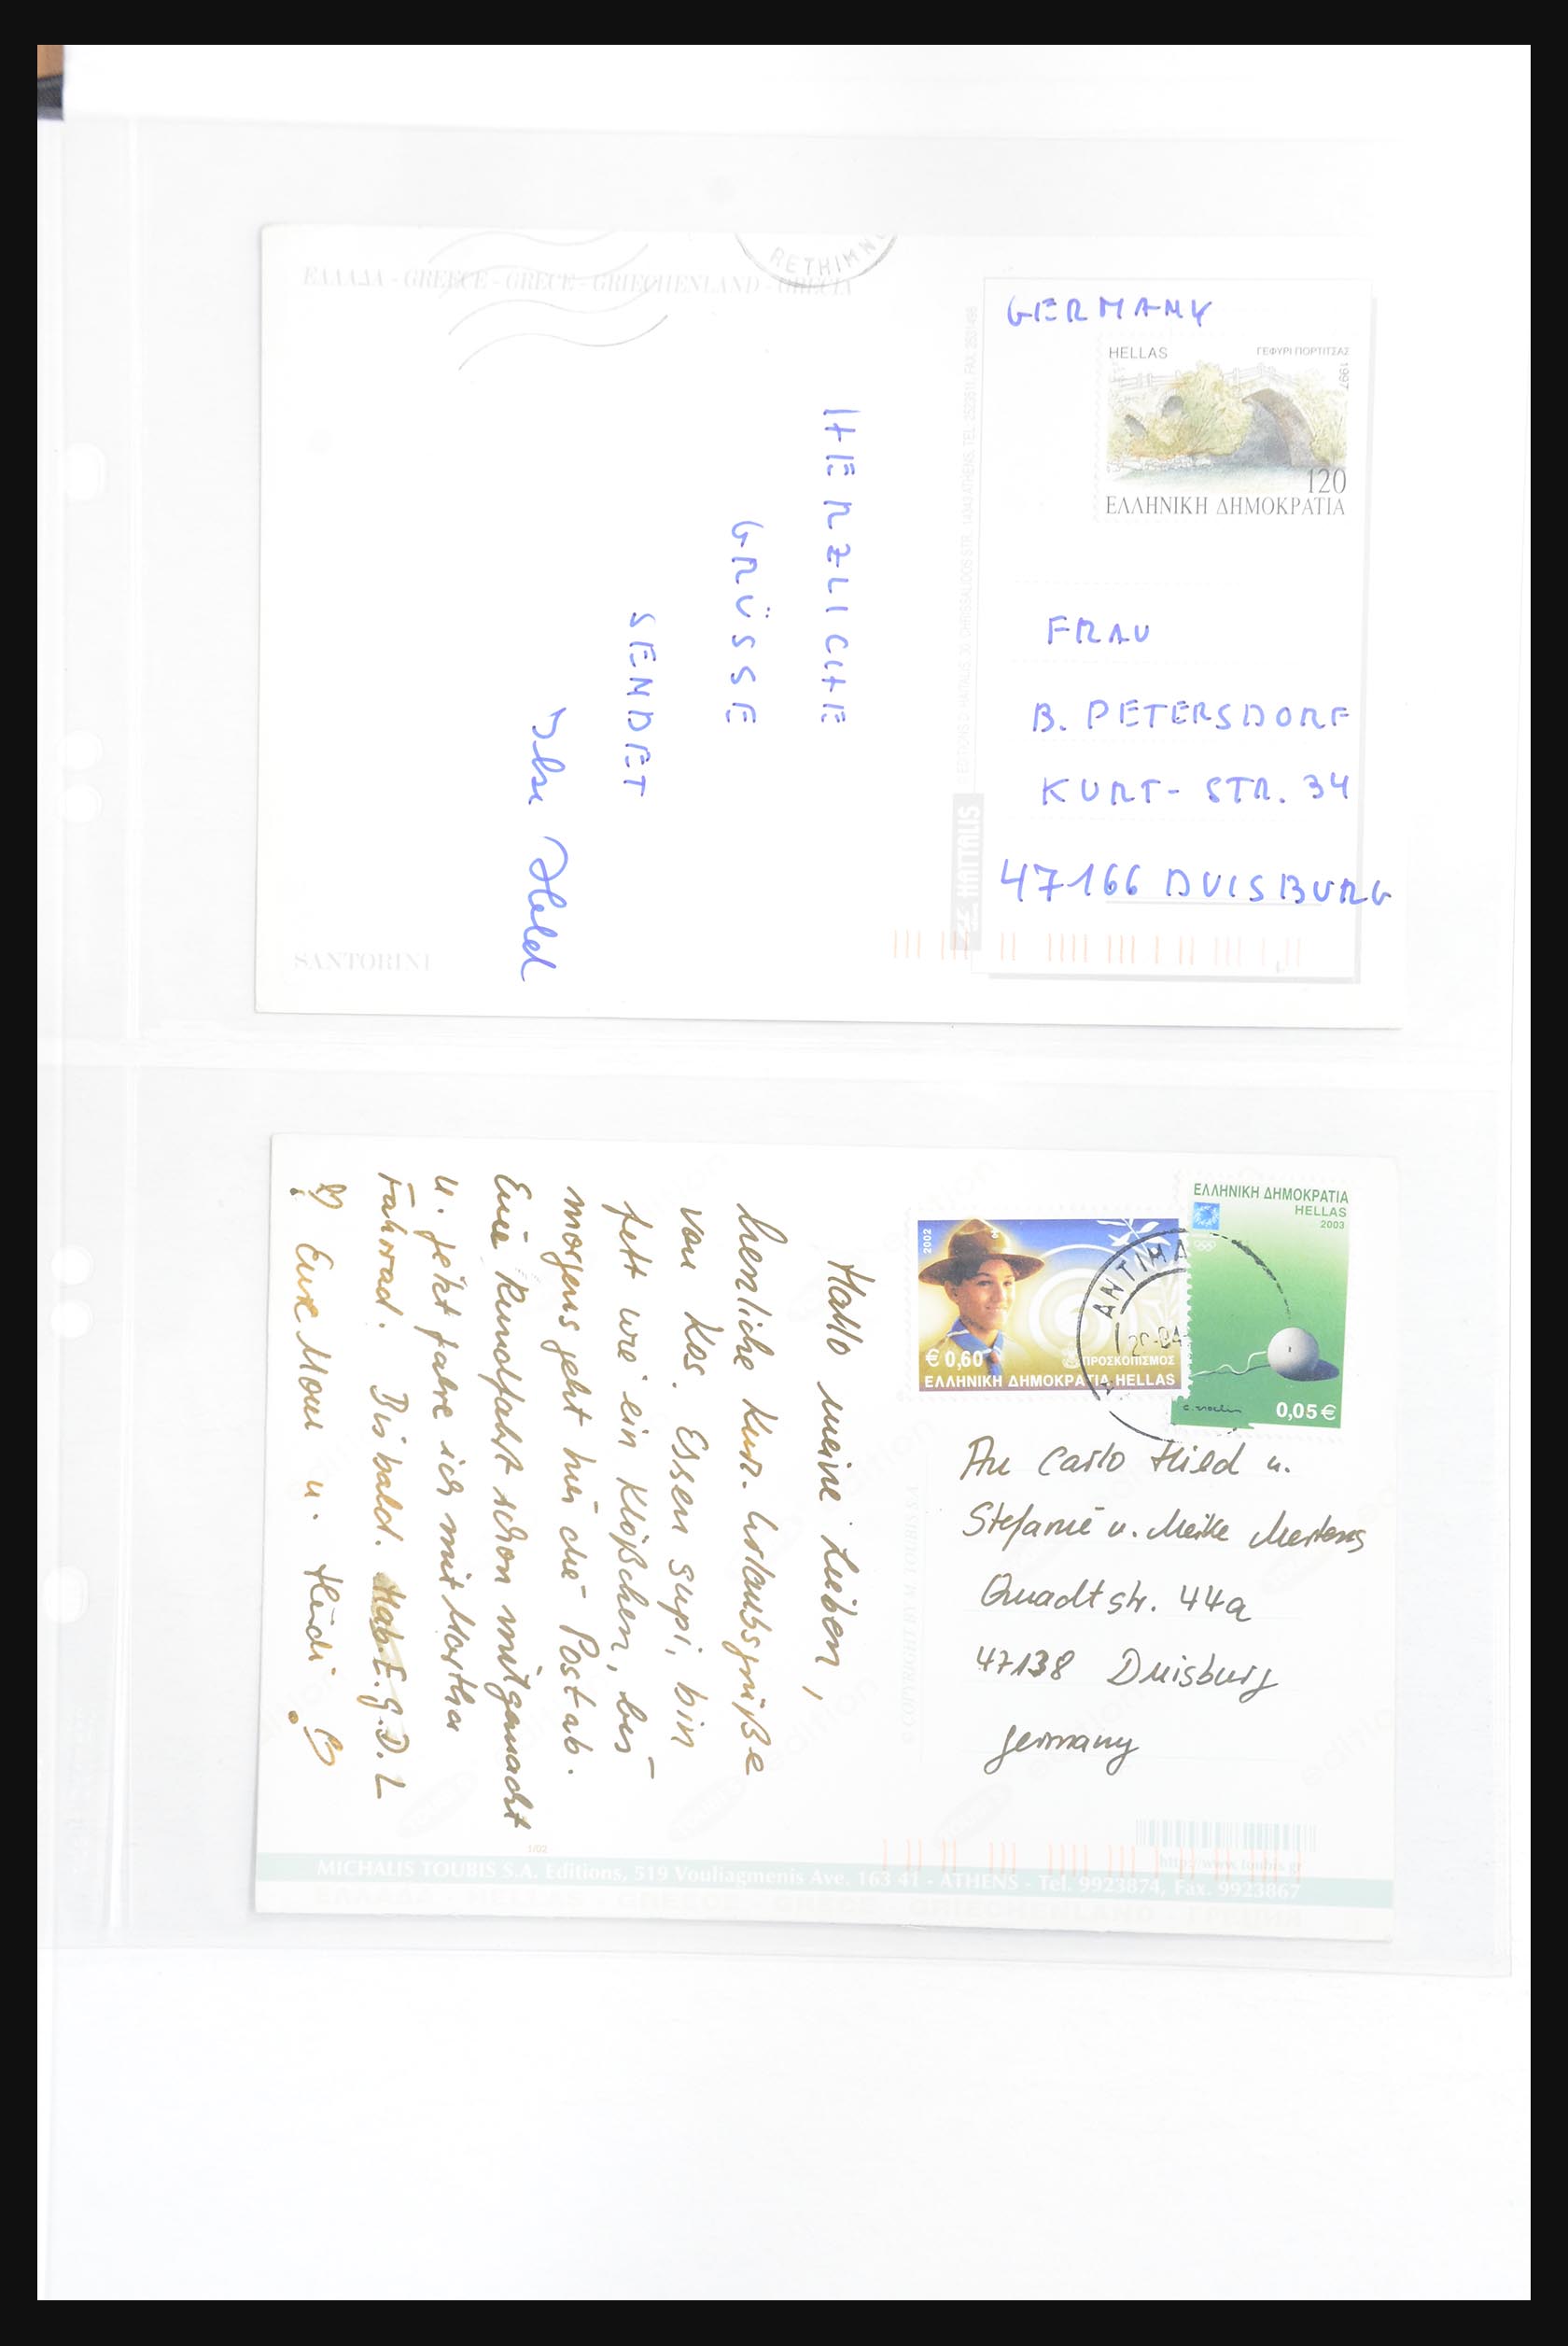 RETHIMNO
ΕΛΛΑΔΑ - GREECE - GRECE - GRIECHENLAND - GRECIA
GERMANY
HELLAS
ΓΕΦΥΡΙ ΠΟΡΤΙΤΣΑΣ
1997
120
ΕΛΛΗΝΙΚΗ ΔΗΜΟΚΡΑΤΙΑ
HERZLICHE
GRÜSSE
SENDET
Ilse Held
FRAU
B. PETERSDORF
KURT-STR. 34
47166 DUISBURG
HAITALIS
SANTORINI
ΕΛΛΗΝΙΚΗ ΔΗΜΟΚΡΑΤΙΑ
HELLAS
2003
0,05€
2002
€ 0,60
ΠΡΟΣΚΟΠΙΣΜΟΣ
ΕΛΛΗΝΙΚΗ ΔΗΜΟΚΡΑΤΙΑ HELLAS
ΑΝΤΙΜΑ
Hallo meine Lieben,
herzliche Kurz-Urlaubsgrüße
von Kos. Essen supi, bin
fett wie ein Klößchen, bus
morgens geht hier die Post ab.
Eine Rundfahrt schon mitgemacht
u. jetzt fahre ich mit Martha
Fahrrad. Bis bald. Hab E.g.D.L
Eure Mom u. Heidi
An Carlo Hild u.
Stefanie u. Meike Mertens
Quadtstr. 44a
47138 Duisburg
Germany
© COPYRIGHT BY M. TOUBIS S.A.
1/02
http://www.toubis.gr
MICHALIS TOUBIS S.A. Editions, 519 Vouliagmenis Ave. 163 41 - ATHENS - Tel. 9923874, Fax. 9923867